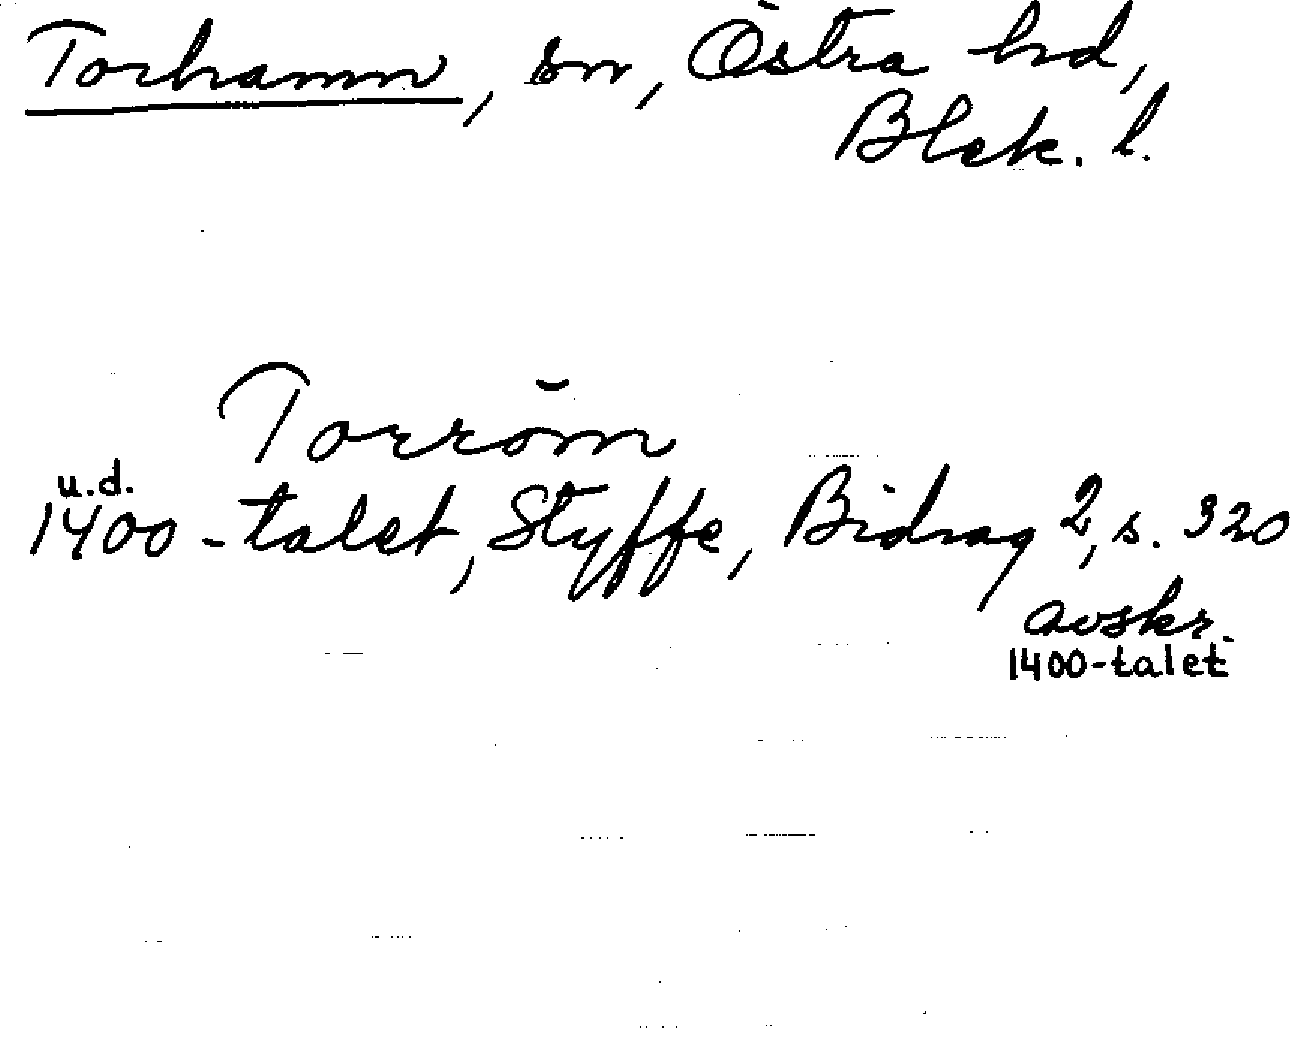 Torhamn, sn, Östra hd,
Blek. l.
Torröm
u.d.
1400-talet, Styffe, Bidrag 2, s. 320
avskr.
1400-talet